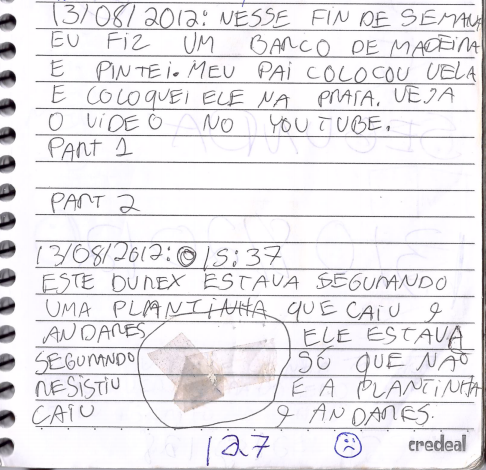 13/08/2012: NESSE FIN DE SEMANA
EU FIZ UM BARCO DE MADEIRA
E PINTEI. MEU PAI COLOCOU VELA
E COLOQUEI ELE NA PRAIA. VEJA
O VIDEO NO YOUTUBE.
PART 1
PART 2
13/08/2012: 15:37
ESTE DUREX ESTAVA SEGURANDO
UMA PLANTINHA QUE CAIU 9
ANDARES ELE ESTAVA
SEGURANDO SÓ QUE NÃO
RESISTIU E A PLANTINHA
CAIU 9 ANDARES.
127
credeal